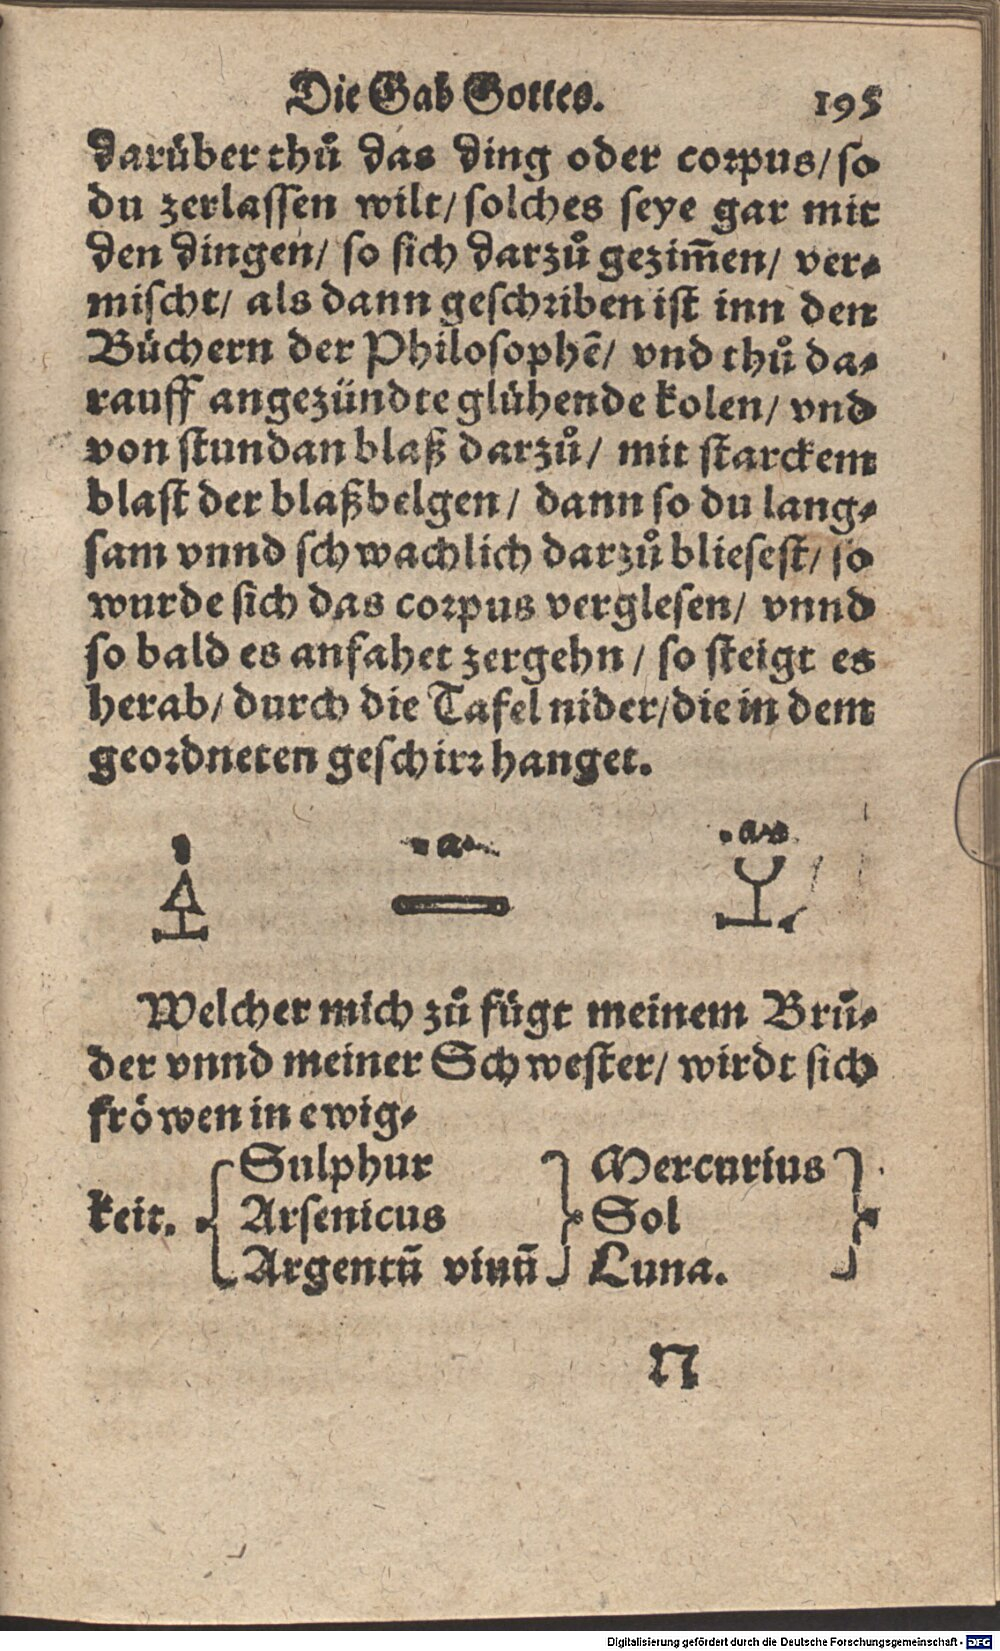 Die Gab Gottes. 195
darüber thů das ding oder corpus/ so
du zerlassen wilt/ solches seye gar mit
den dingen/ so sich darzů gezim̃en/ ver-
mischt/ als dann geschriben ist inn den
Büchern der Philosophē/ vnd thů da-
rauff angezündte glühende kolen/ vnd
von stundan blaß darzů/ mit starckem
blast der blaßbelgen/ dann so du lang-
sam vnnd schwachlich darzů bliesest/ so
wurde sich das corpus verglesen/ vnnd
so bald es anfahet zergehn/ so steigt es
herab/ durch die Tafel nider/ die in dem
geordneten geschirr hanget.
Welcher mich zů fügt meinem Brů-
der vnnd meiner Schwester/ wirdt sich
fröwen in ewig-
Sulphur Mercurius
keit. Arsenicus Sol
Argentū viuū Luna.
N
Digitalisierung gefördert durch die Deutsche Forschungsgemeinschaft - DFG